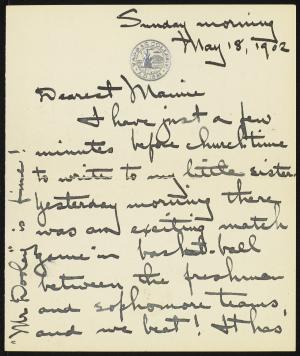 Sunday morning
May 18, 1902
Dearest Mamie
I have just a few
minutes before church time
to write to my little sister.
Yesterday morning there
was an exiting match
game in basket-ball
between the freshman
and sophomore teams,
and we beat! It has
"Mr. Dooley" is time!